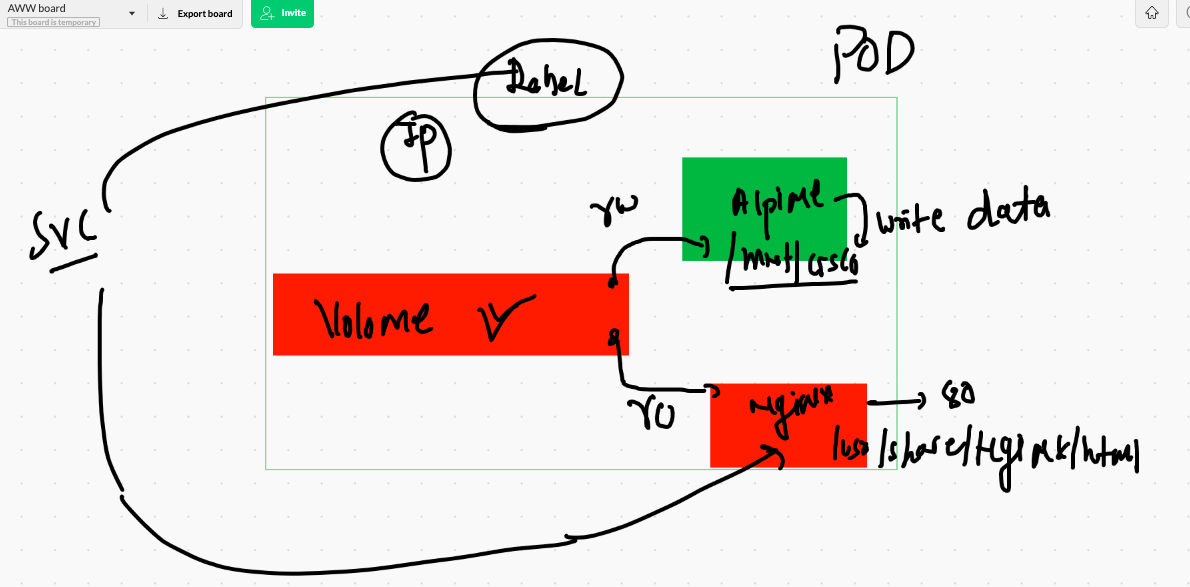 AWW board
This board is temporary
Export board
Invite
POD
Label
IP
SVC
rw
Alpine
write data
/mnt/cisco
Volume
ro
nginx
80
/usr/share/nginx/html